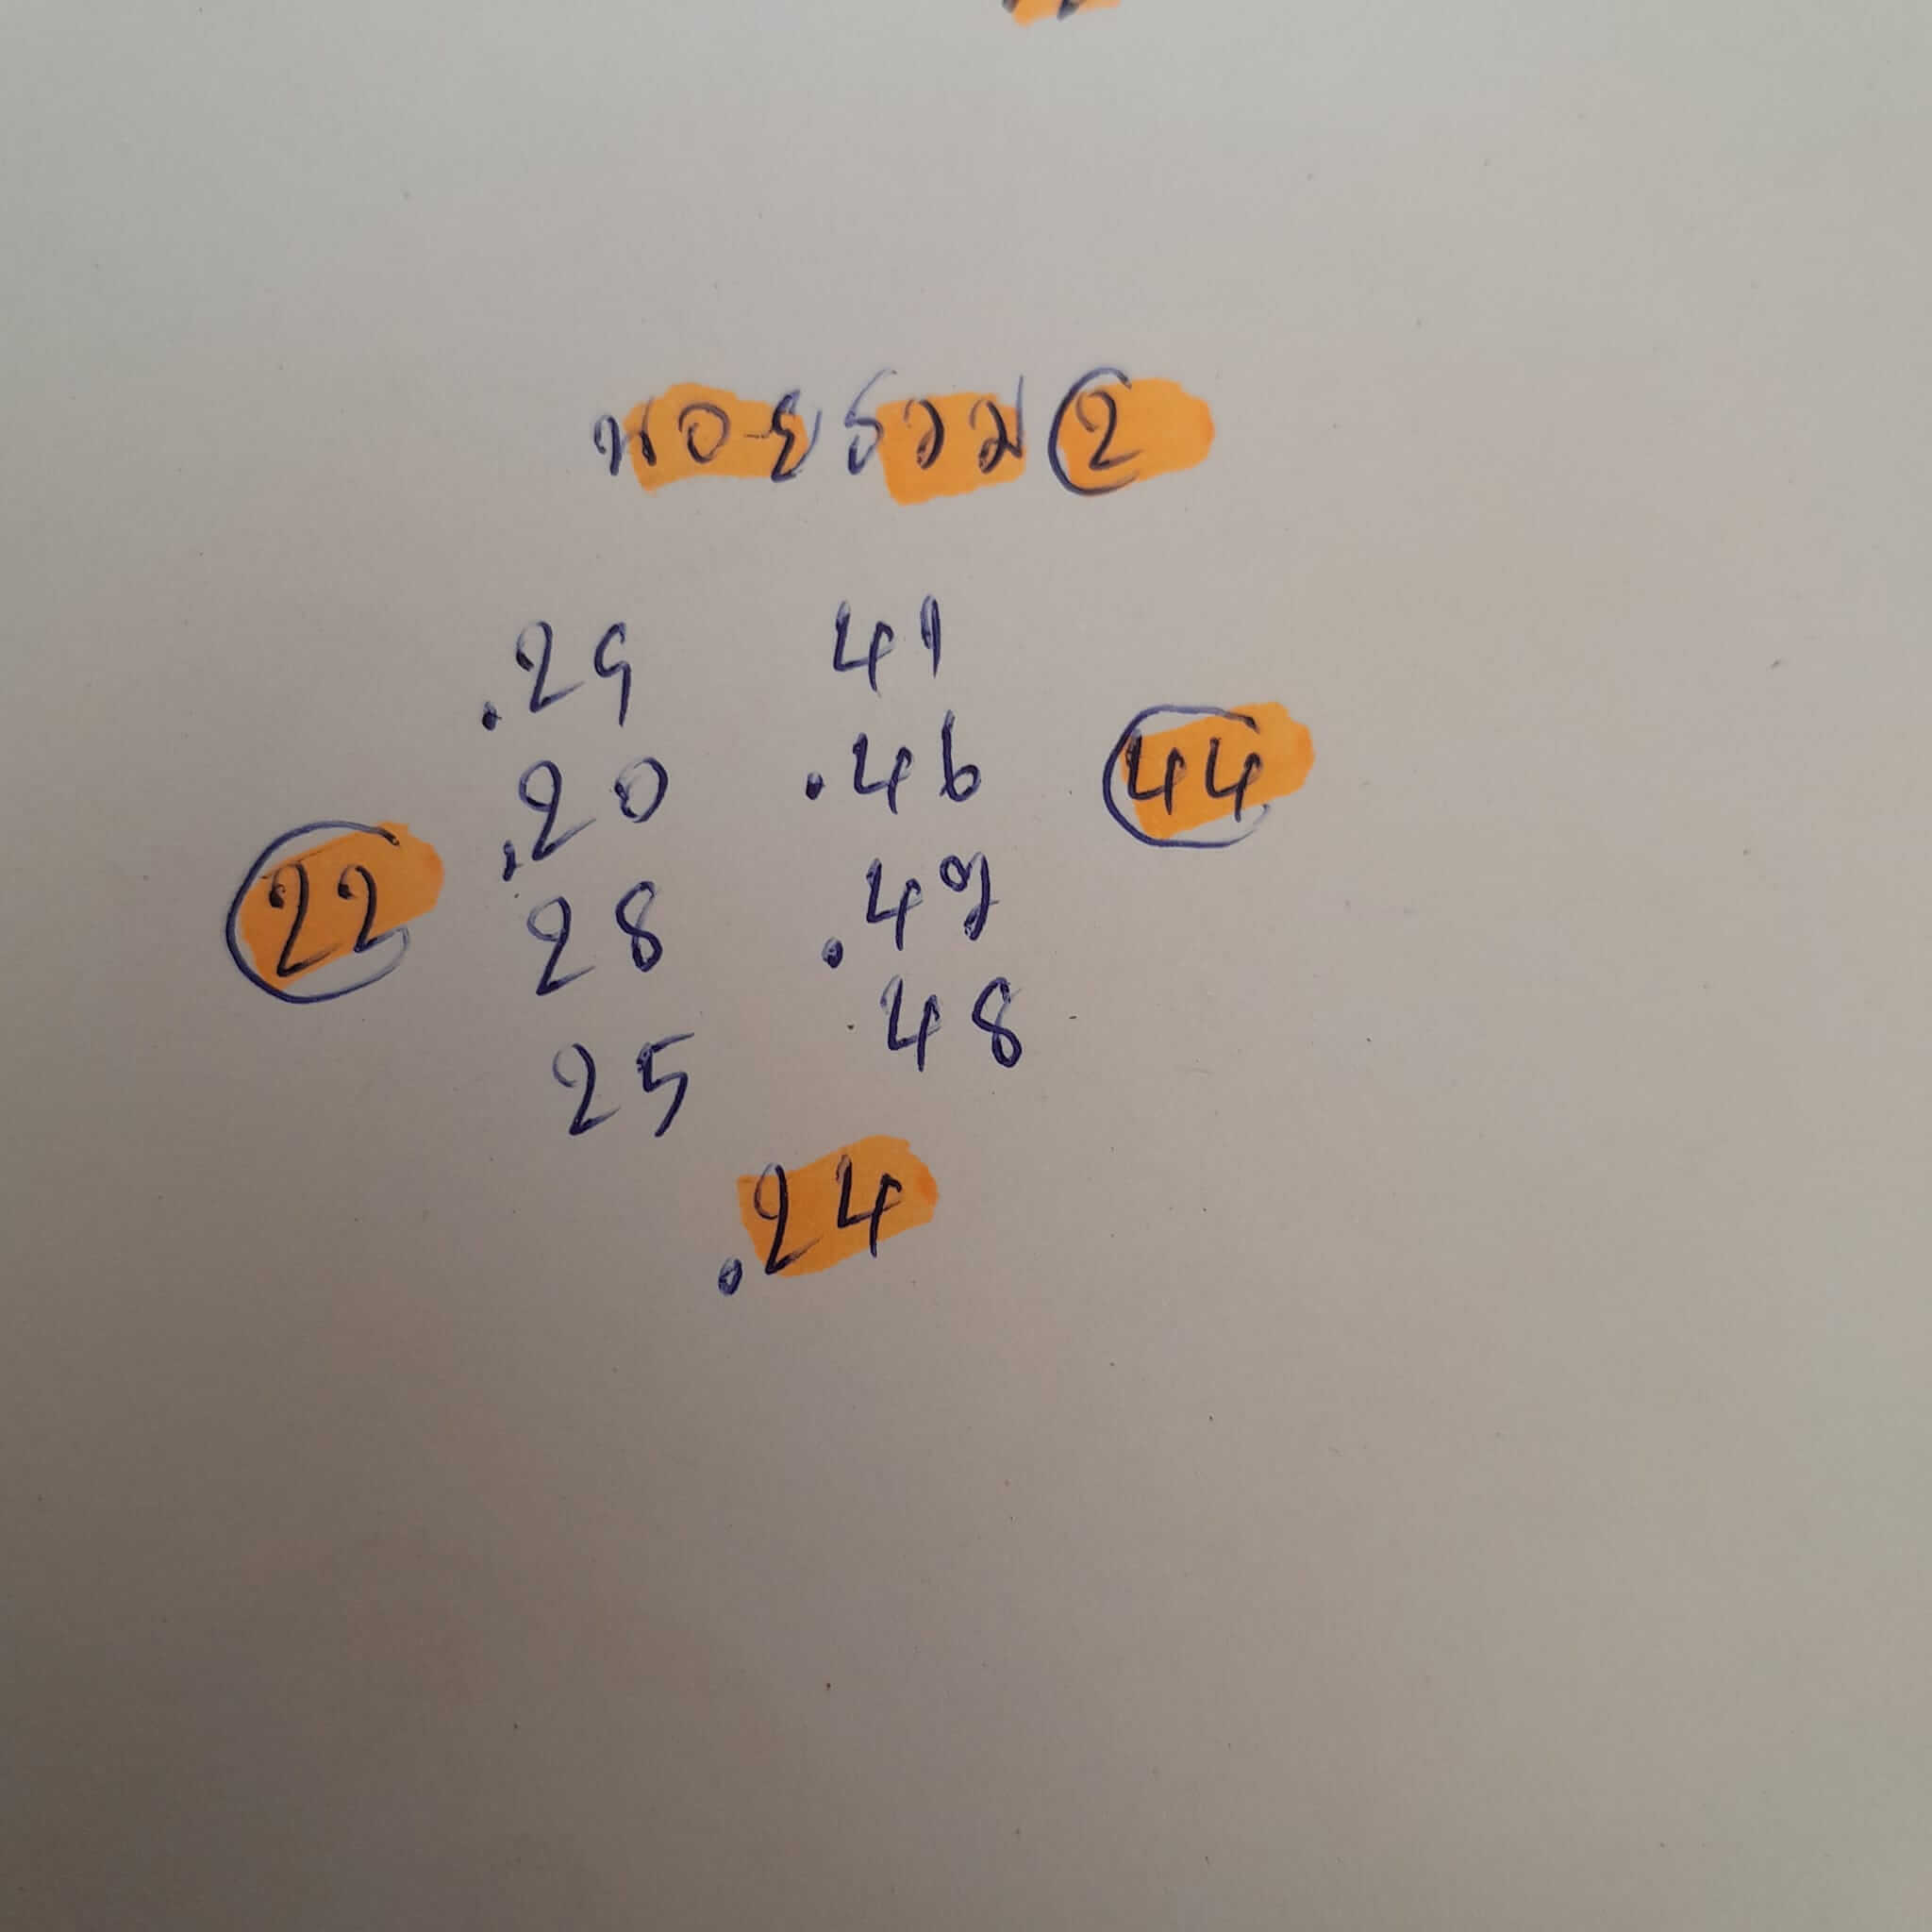 นอยรวม 2
.29 41
.20 .46 44
22 28 .47
25 48
.24